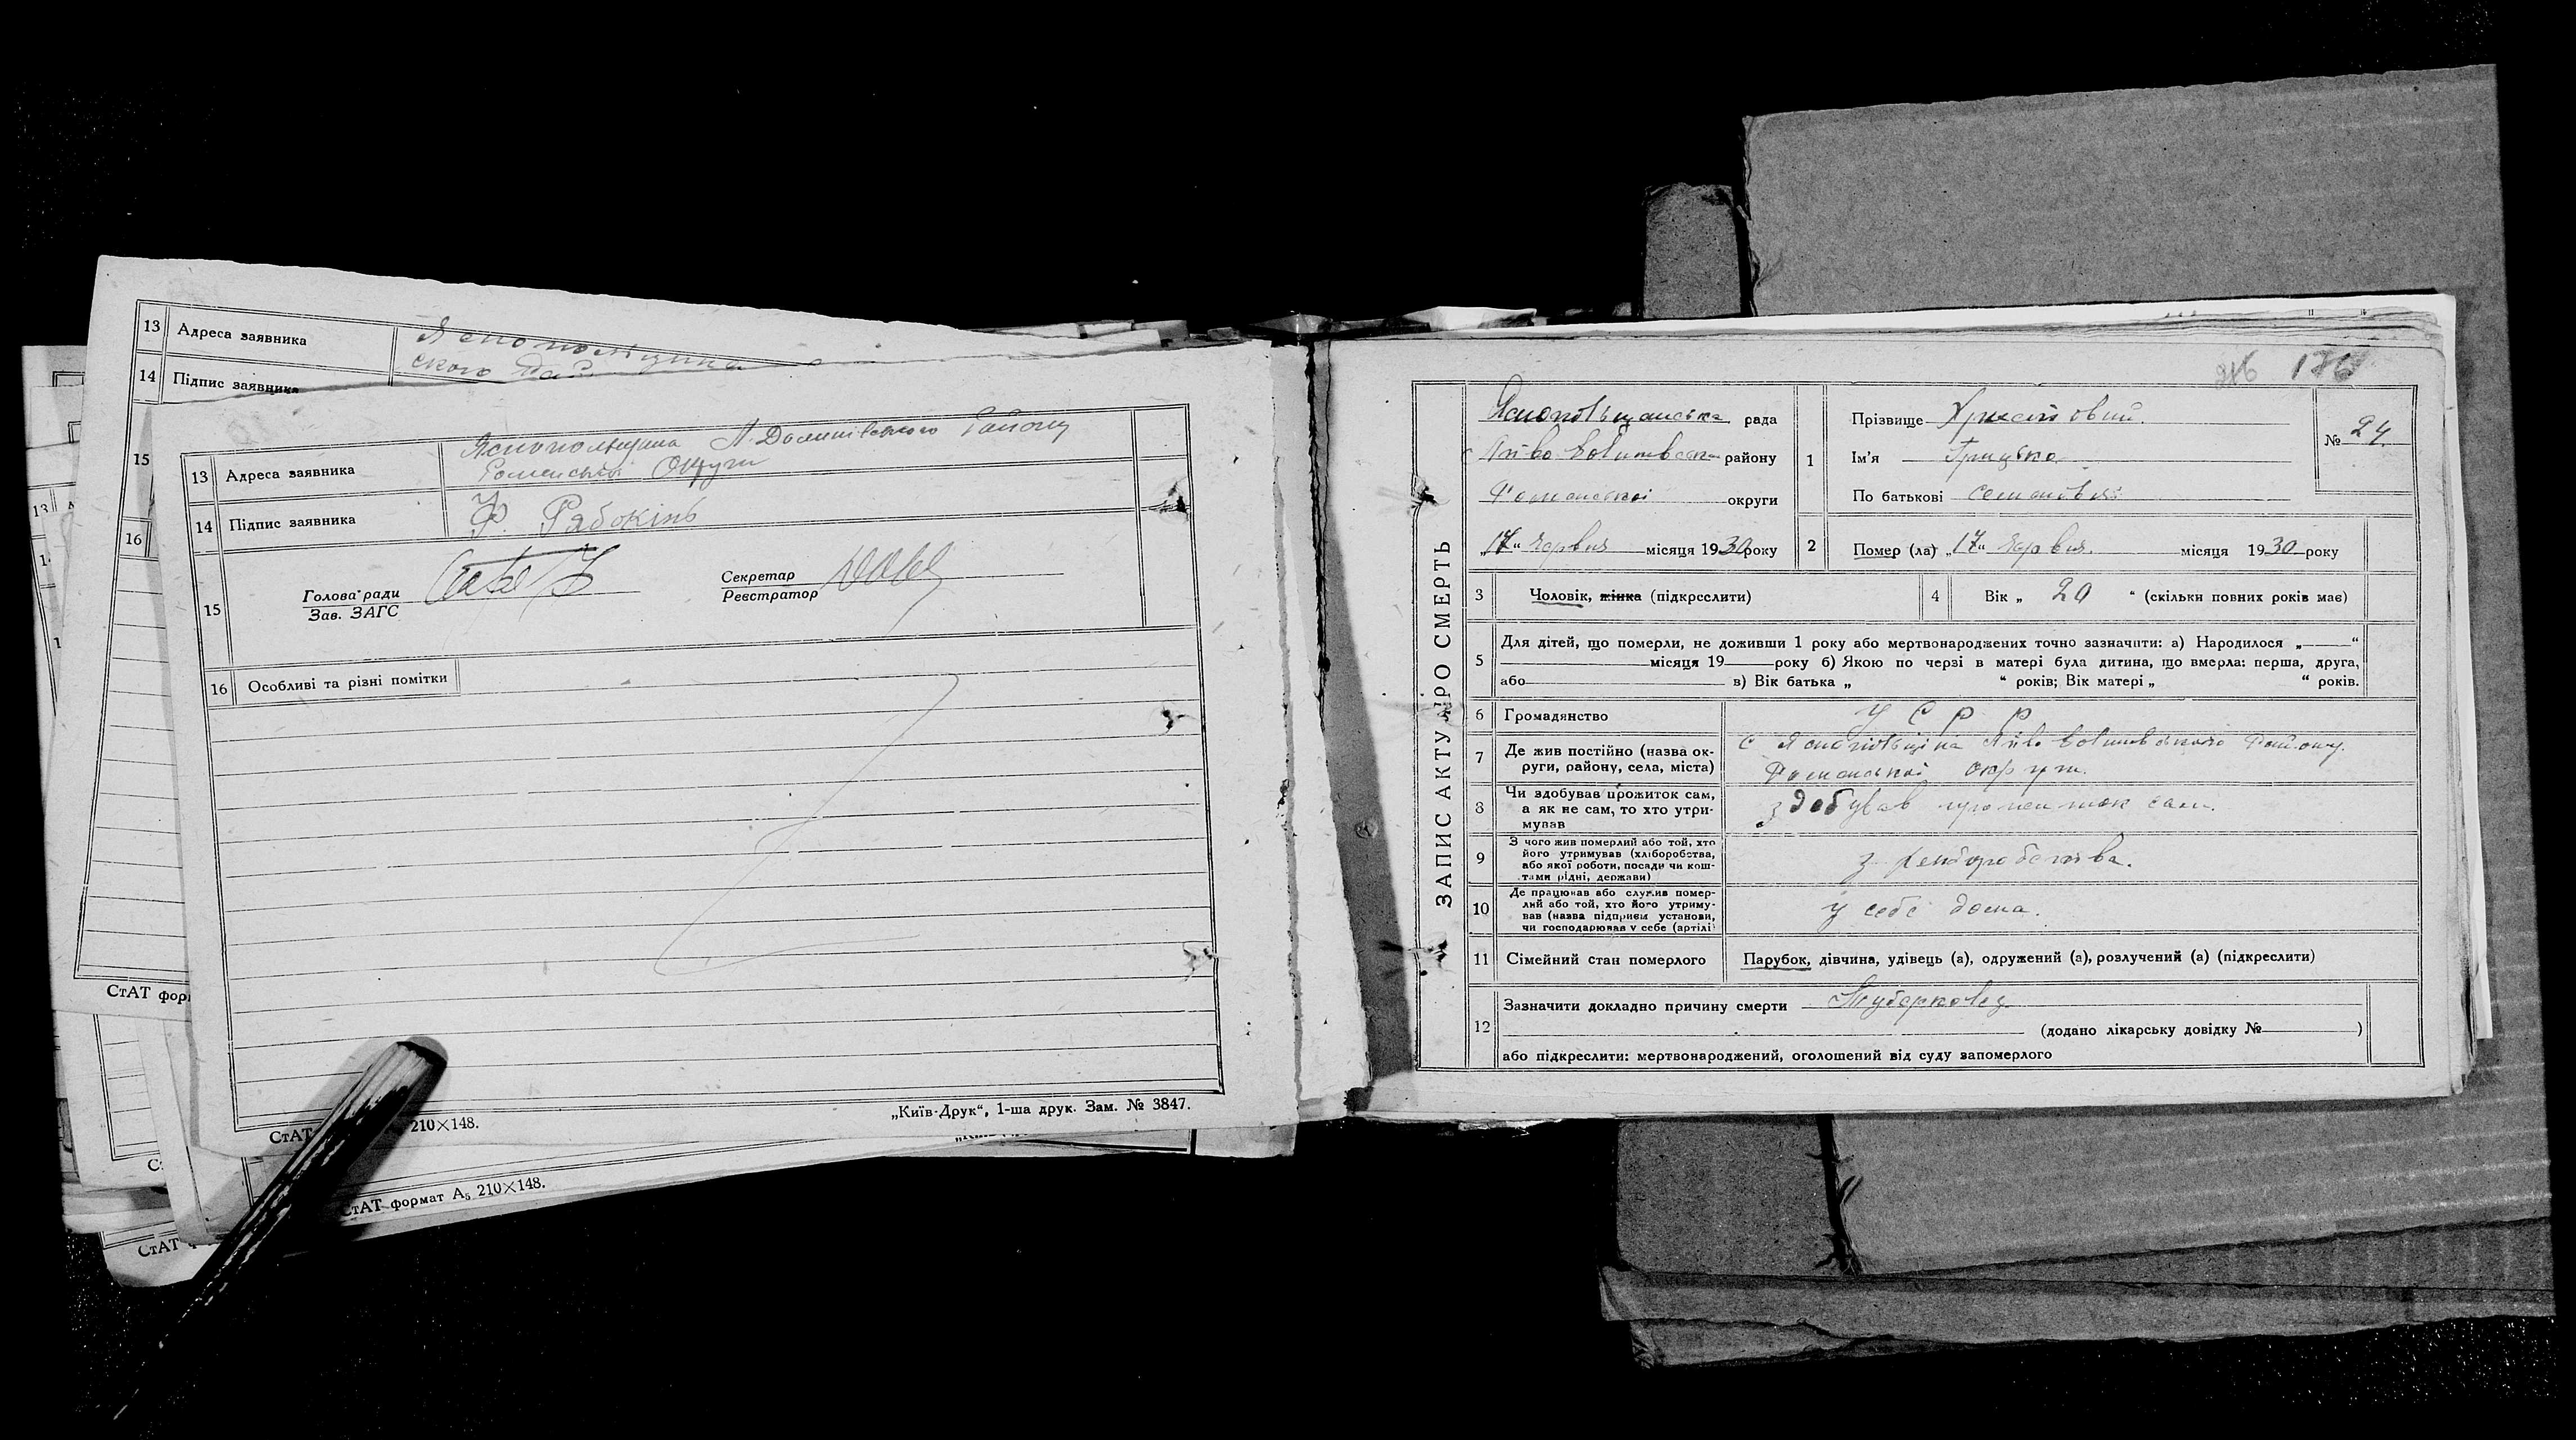 13 Адреса заявника
14 Підпис заявника
15
16
13 Адреса заявника Яснопольщина Л. Долинівського Району
Роменської Округи
14 Підпис заявника Ф. Рябокінь
15 Голова ради
Зав. ЗАГС
Секретар
Реєстратор
16 Особливі та різні помітки
СтАТ 210×148.
„Київ-Друк“, 1-ша друк. Зам. № 3847.
СтАТ формат А₅ 210×148.
176
ЗАПИС АКТУ ПРО СМЕРТЬ
рада
району
Роменської округи
„17“ червня місяця 1930 року
1 Прізвище
Ім'я Грицько
По батькові Семенович
№ 24
2 Помер (ла) „17“ червня місяця 1930 року
3 Чоловік, жінка (підкреслити)
4 Вік „ 20 “ (скільки повних років має)
5 Для дітей, що померли, не доживши 1 року або мертвонароджених точно зазначити: а) Народилося „ “
місяця 19 року б) Якою по черзі в матері була дитина, що вмерла: перша, друга,
або в) Вік батька „ “ років; Вік матері „ “ років.
6 Громадянство У С Р Р
7 Де жив постійно (назва ок-
руги, району, села, міста)
Роменської округи.
8 Чи здобував прожиток сам,
а як не сам, то хто утри-
мував
здобував прожиток сам.
9 З чого жив померлий або той, хто
його утримував (хліборобства,
або якої роботи, посади чи кош-
тами рідні, держави)
з хліборобства.
10 Де працював або служив помер-
лий або той, хто його утриму-
вав (назва підприєм установи,
чи господарював у себе (артілі)
у себе дома.
11 Сімейний стан померлого Парубок, дівчина, удівець (а), одружений (а), розлучений (а) (підкреслити)
12 Зазначити докладно причину смерти Туберкольоз
(додано лікарську довідку № )
або підкреслити: мертвонароджений, оголошений від суду запомерлого